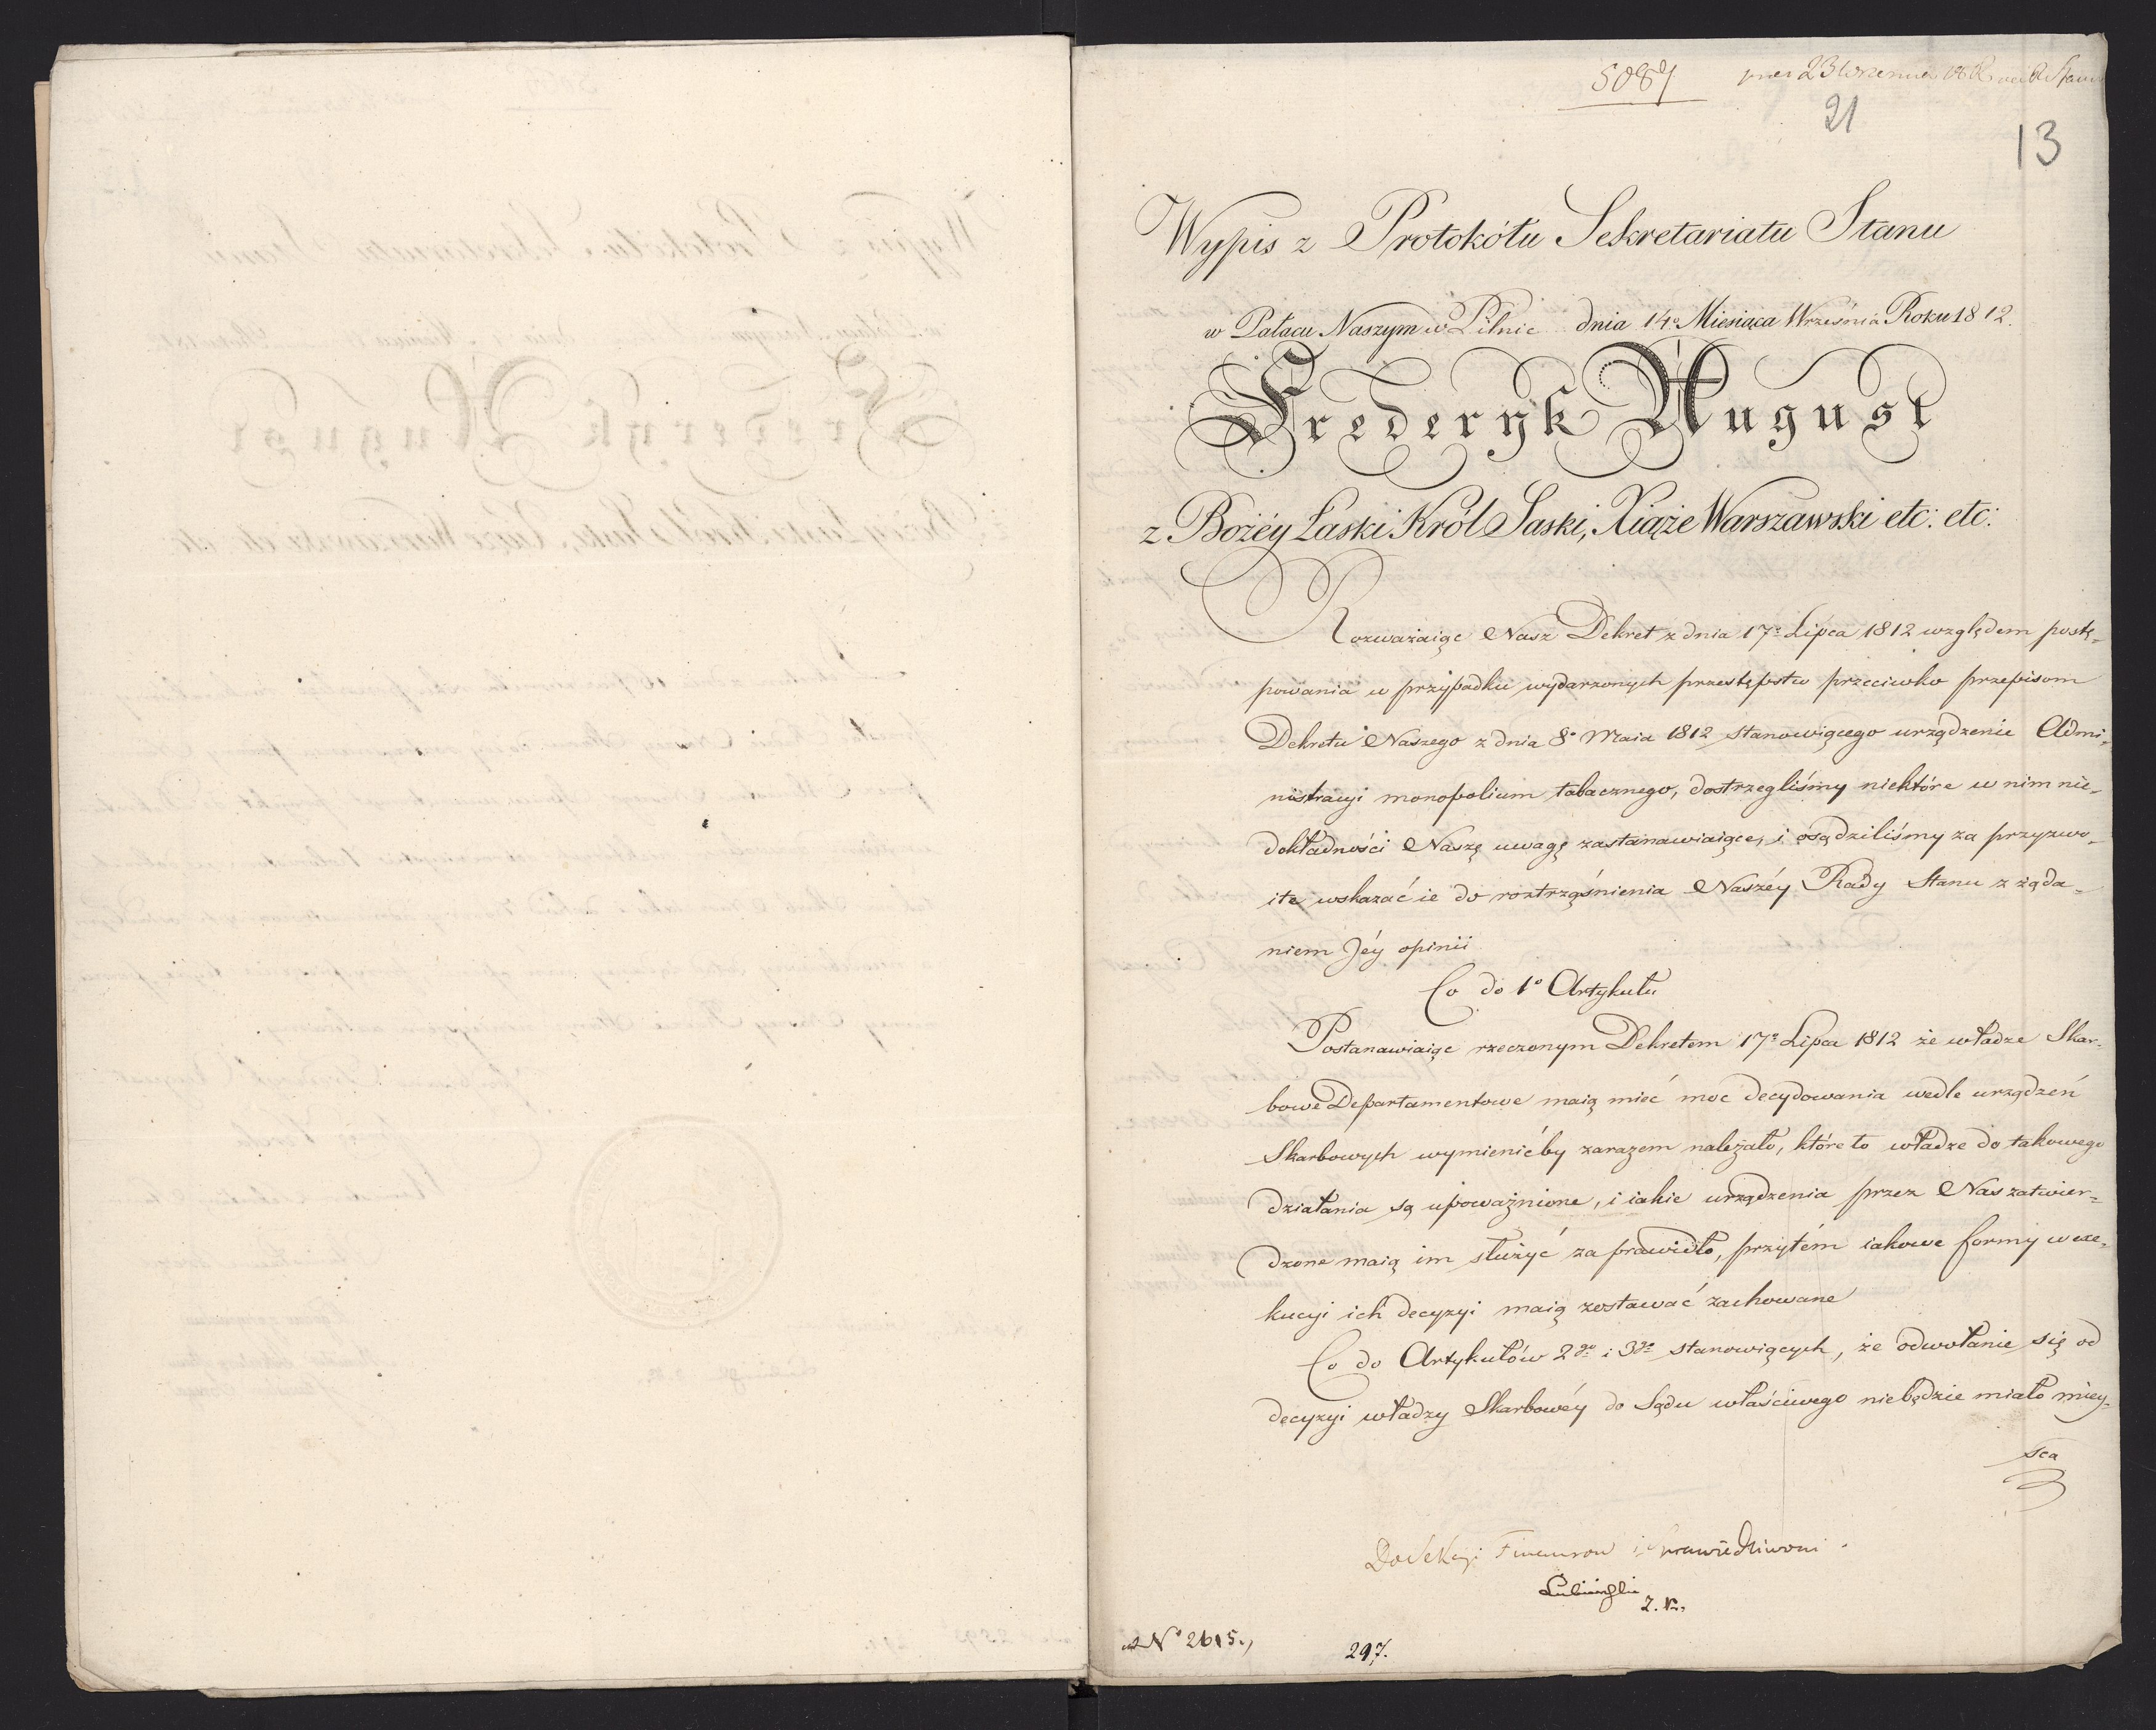 5087
23 Września
21
13
Wypis z Protokółu Sekretariatu Stanu
w Pałacu Naszym w Pilnic dnia 14º Miesiąca Września Roku 1812.
Frederyk August
z Bożéy Łaski Król Saski, Xiąże Warszawski etc: etc:
Rozważaiąc Nasz Dekret z dnia 17º Lipca 1812 względem postę-
powania w przypadku wydarzonych przestępstw przeciwko przepisom
Dekretu Naszego z dnia 8º Maia 1812 stanowiącego urządzenie Admi-
nistracyi monopolium tabacznego, dostrzegliśmy niektóre w nim nie-
dokładności Naszą uwagę zastanawiaiące, i osądziliśmy za przyzwo-
ite wskazać ie do roztrząśnienia Naszéy Rady Stanu z żąda-
niem Jéy opinii
Co do 1º Artykułu
Postanawiaiąc rzeczonym Dekretem 17º Lipca 1812 że władze Skar-
bowe Departamentowe maią mieć moc decydowania wedle urządzeń
Skarbowych wymienićby zarazem należało, które to władze do takowego
działania są upoważnione, i iakie urządzenia przez Nas zatwier-
dzone maią im służyć za prawidło, przytém iakowe formy w exe-
kucyi ich decyzyi maią zostawać zachowane
Co do Artykułów 2go i 3go stanowiących, że odwołanie się od
decyzyi władzy Skarbowéy do Sądu właściwego niebędzie miało miey-
sca
Do Sekcyi Finansow i Sprawiedliwosci.
Z. R.
Nº 2615.,
297.